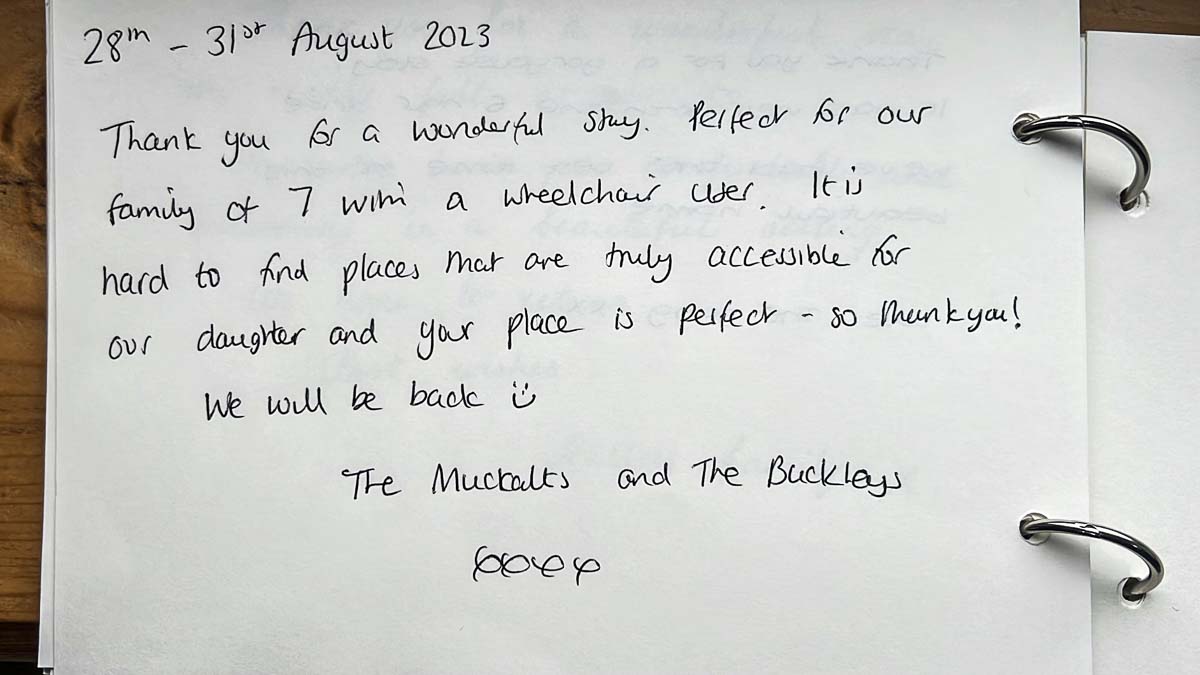 28th - 31st August 2023
Thank you for a wonderful stay. Perfect for our
family of 7 with a wheelchair user. It is
hard to find places that are truly accessible for
our daughter and your place is perfect - so thank you!
We will be back :)
The Muckalts and The Buckleys